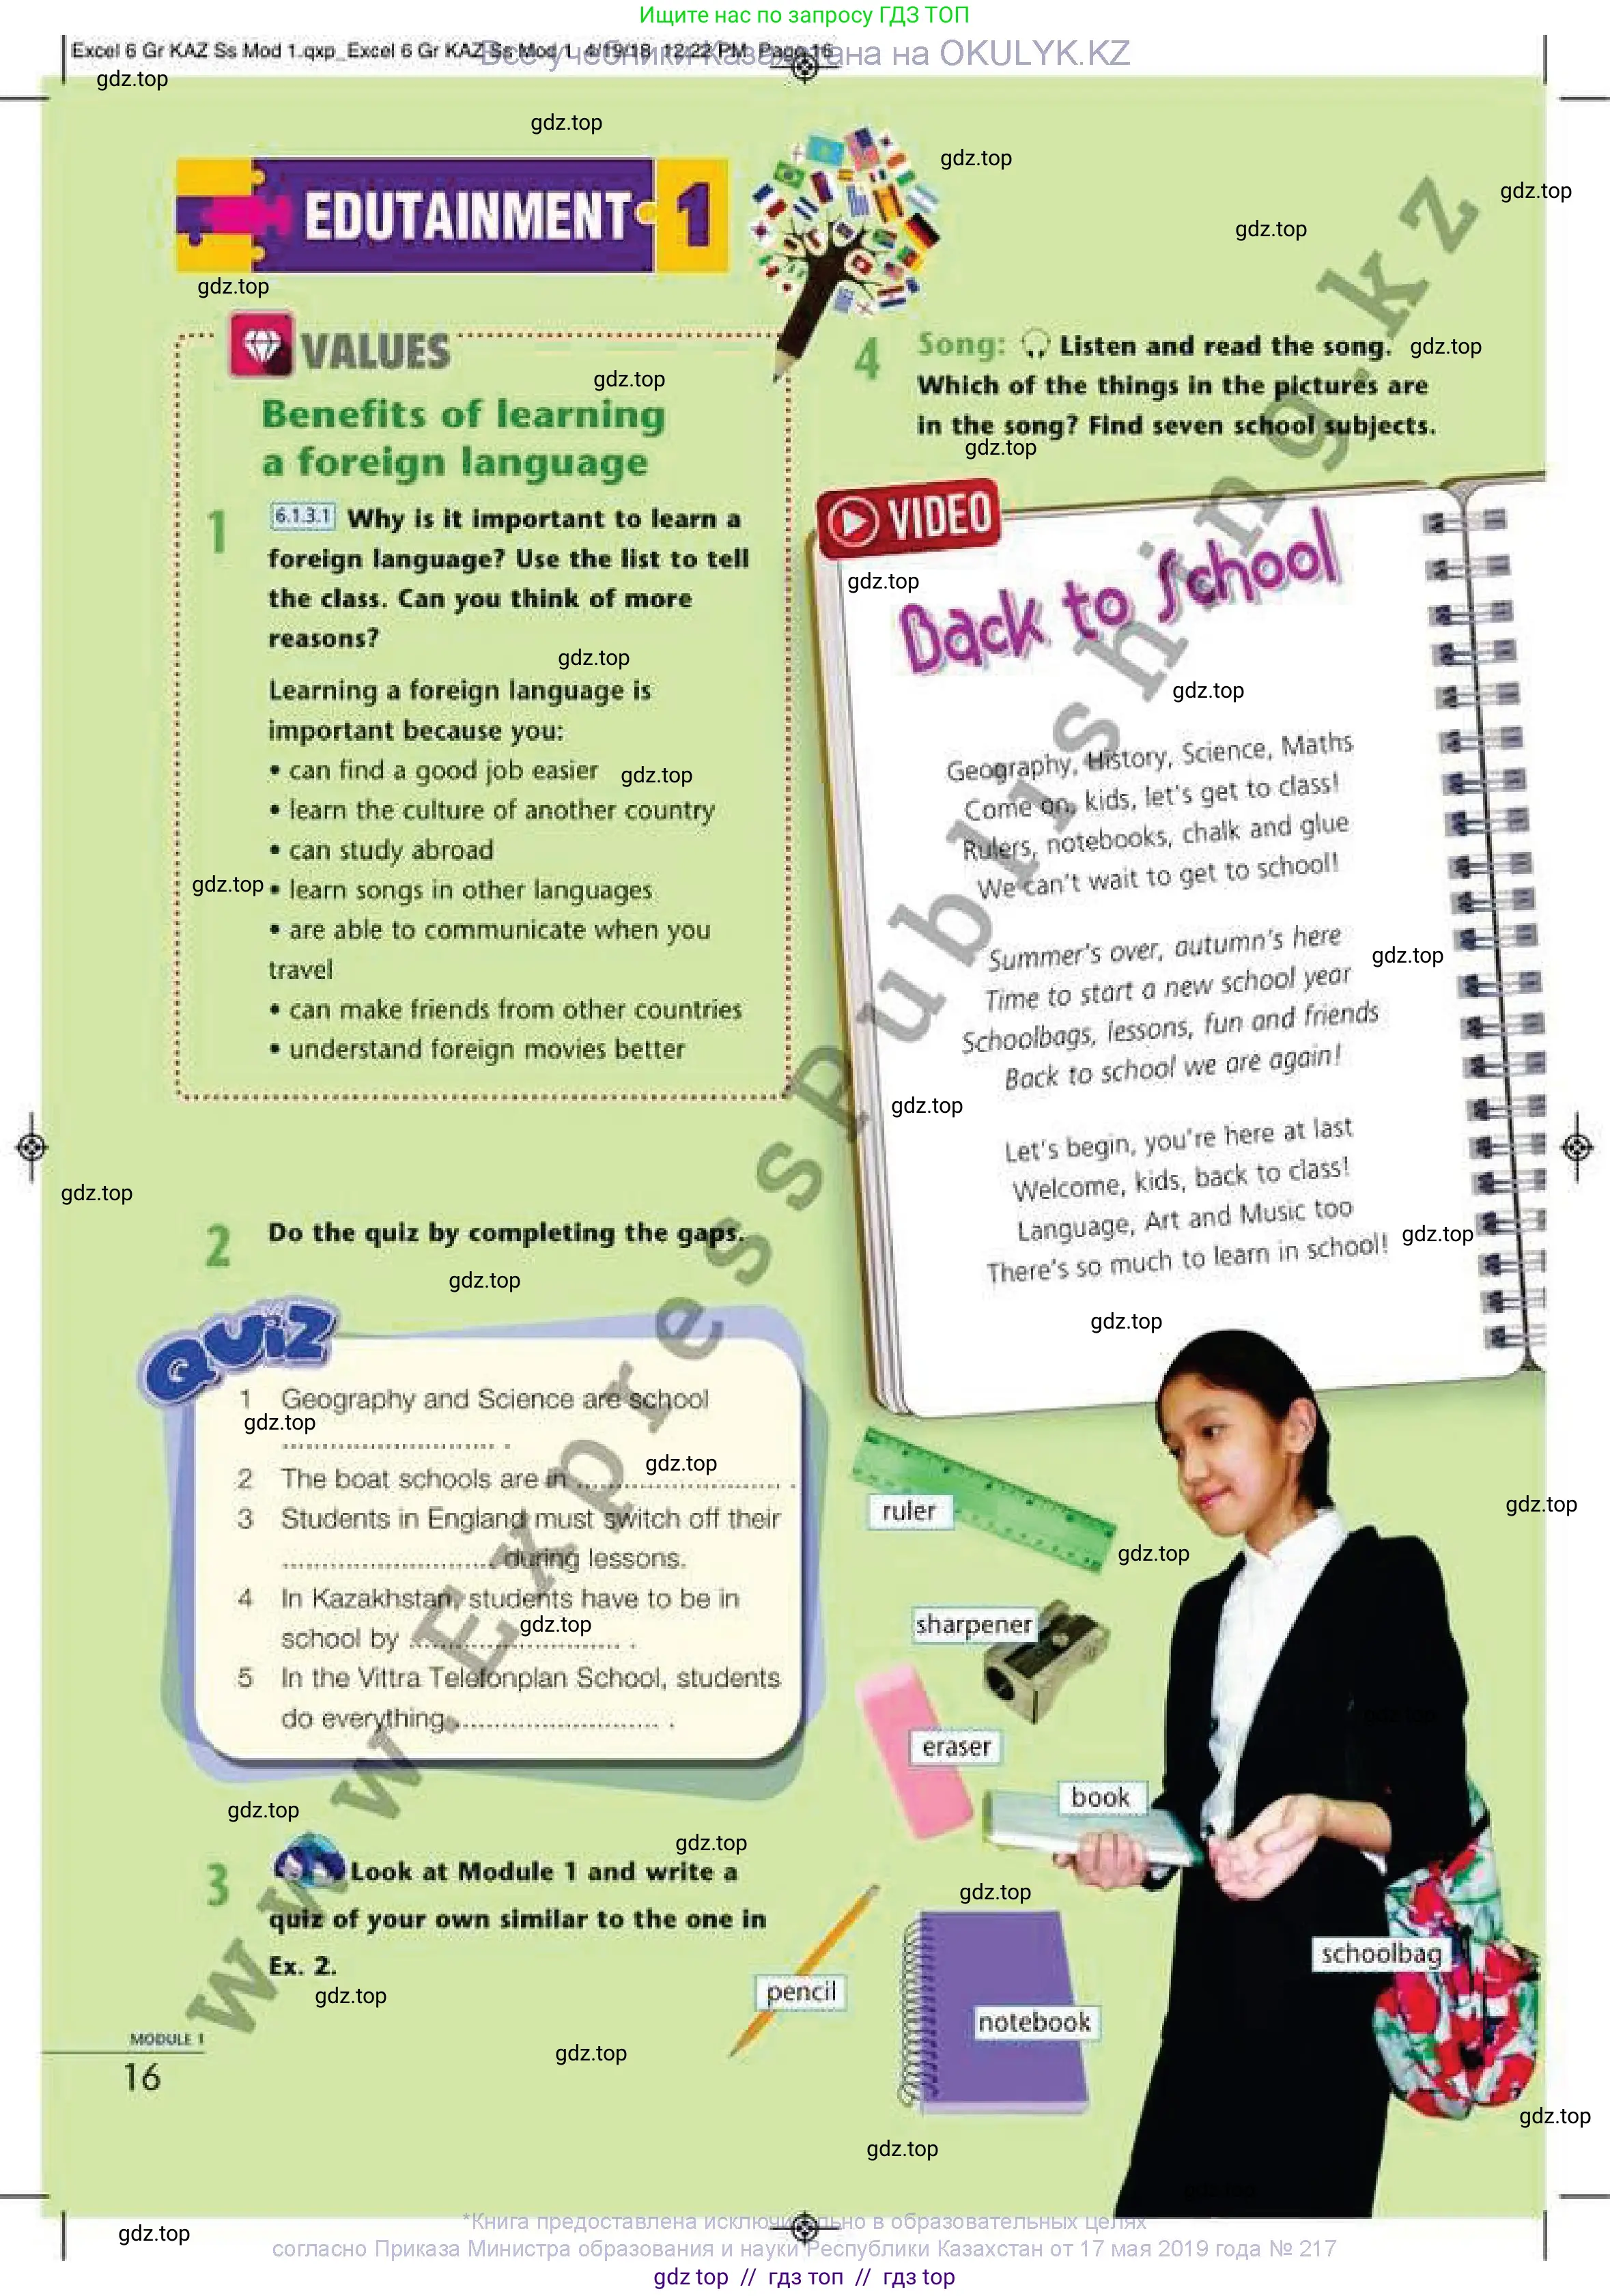 Ищите нас по запросу ГДЗ ТОП
Excel 6 Gr KAZ Ss Mod 1.qxp_Excel 6 Gr KAZ Ss Mod 1 4/19/18 12:22 PM Page 16
Все учебники Казахстана на OKULYK.KZ
gdz.top
gdz.top
gdz.top
gdz.top
gdz.top
EDUTAINMENT 1
gdz.top
VALUES
gdz.top
Benefits of learning
a foreign language
1 6.1.3.1 Why is it important to learn a
foreign language? Use the list to tell
the class. Can you think of more
reasons?
gdz.top
Learning a foreign language is
important because you:
• can find a good job easier
gdz.top
• learn the culture of another country
• can study abroad
gdz.top
• learn songs in other languages
• are able to communicate when you
travel
• can make friends from other countries
• understand foreign movies better
gdz.top
2 Do the quiz by completing the gaps.
gdz.top
QUIZ
1 Geography and Science are school
gdz.top
........................... .
2 The boat schools are in .......................... .
gdz.top
3 Students in England must switch off their
........................... during lessons.
4 In Kazakhstan, students have to be in
gdz.top
school by ........................... .
5 In the Vittra Telefonplan School, students
do everything .......................... .
gdz.top
gdz.top
3 Look at Module 1 and write a
quiz of your own similar to the one in
Ex. 2.
gdz.top
MODULE 1
16
gdz.top
4 Song: Listen and read the song.
gdz.top
Which of the things in the pictures are
in the song? Find seven school subjects.
gdz.top
VIDEO
gdz.top
Back to School
gdz.top
Geography, History, Science, Maths
Come on, kids, let's get to class!
Rulers, notebooks, chalk and glue
We can't wait to get to school!
Summer's over, autumn's here
gdz.top
Time to start a new school year
Schoolbags, lessons, fun and friends
Back to school we are again!
gdz.top
Let's begin, you're here at last
Welcome, kids, back to class!
Language, Art and Music too
gdz.top
There's so much to learn in school!
gdz.top
ruler
gdz.top
gdz.top
sharpener
gdz.top
eraser
book
gdz.top
schoolbag
pencil
notebook
gdz.top
gdz.top
gdz.top
gdz.top
www.ExpressPublishing.kz
*Книга предоставлена исключительно в образовательных целях
согласно Приказа Министра образования и науки Республики Казахстан от 17 мая 2019 года № 217
gdz top // гдз топ // гдз top